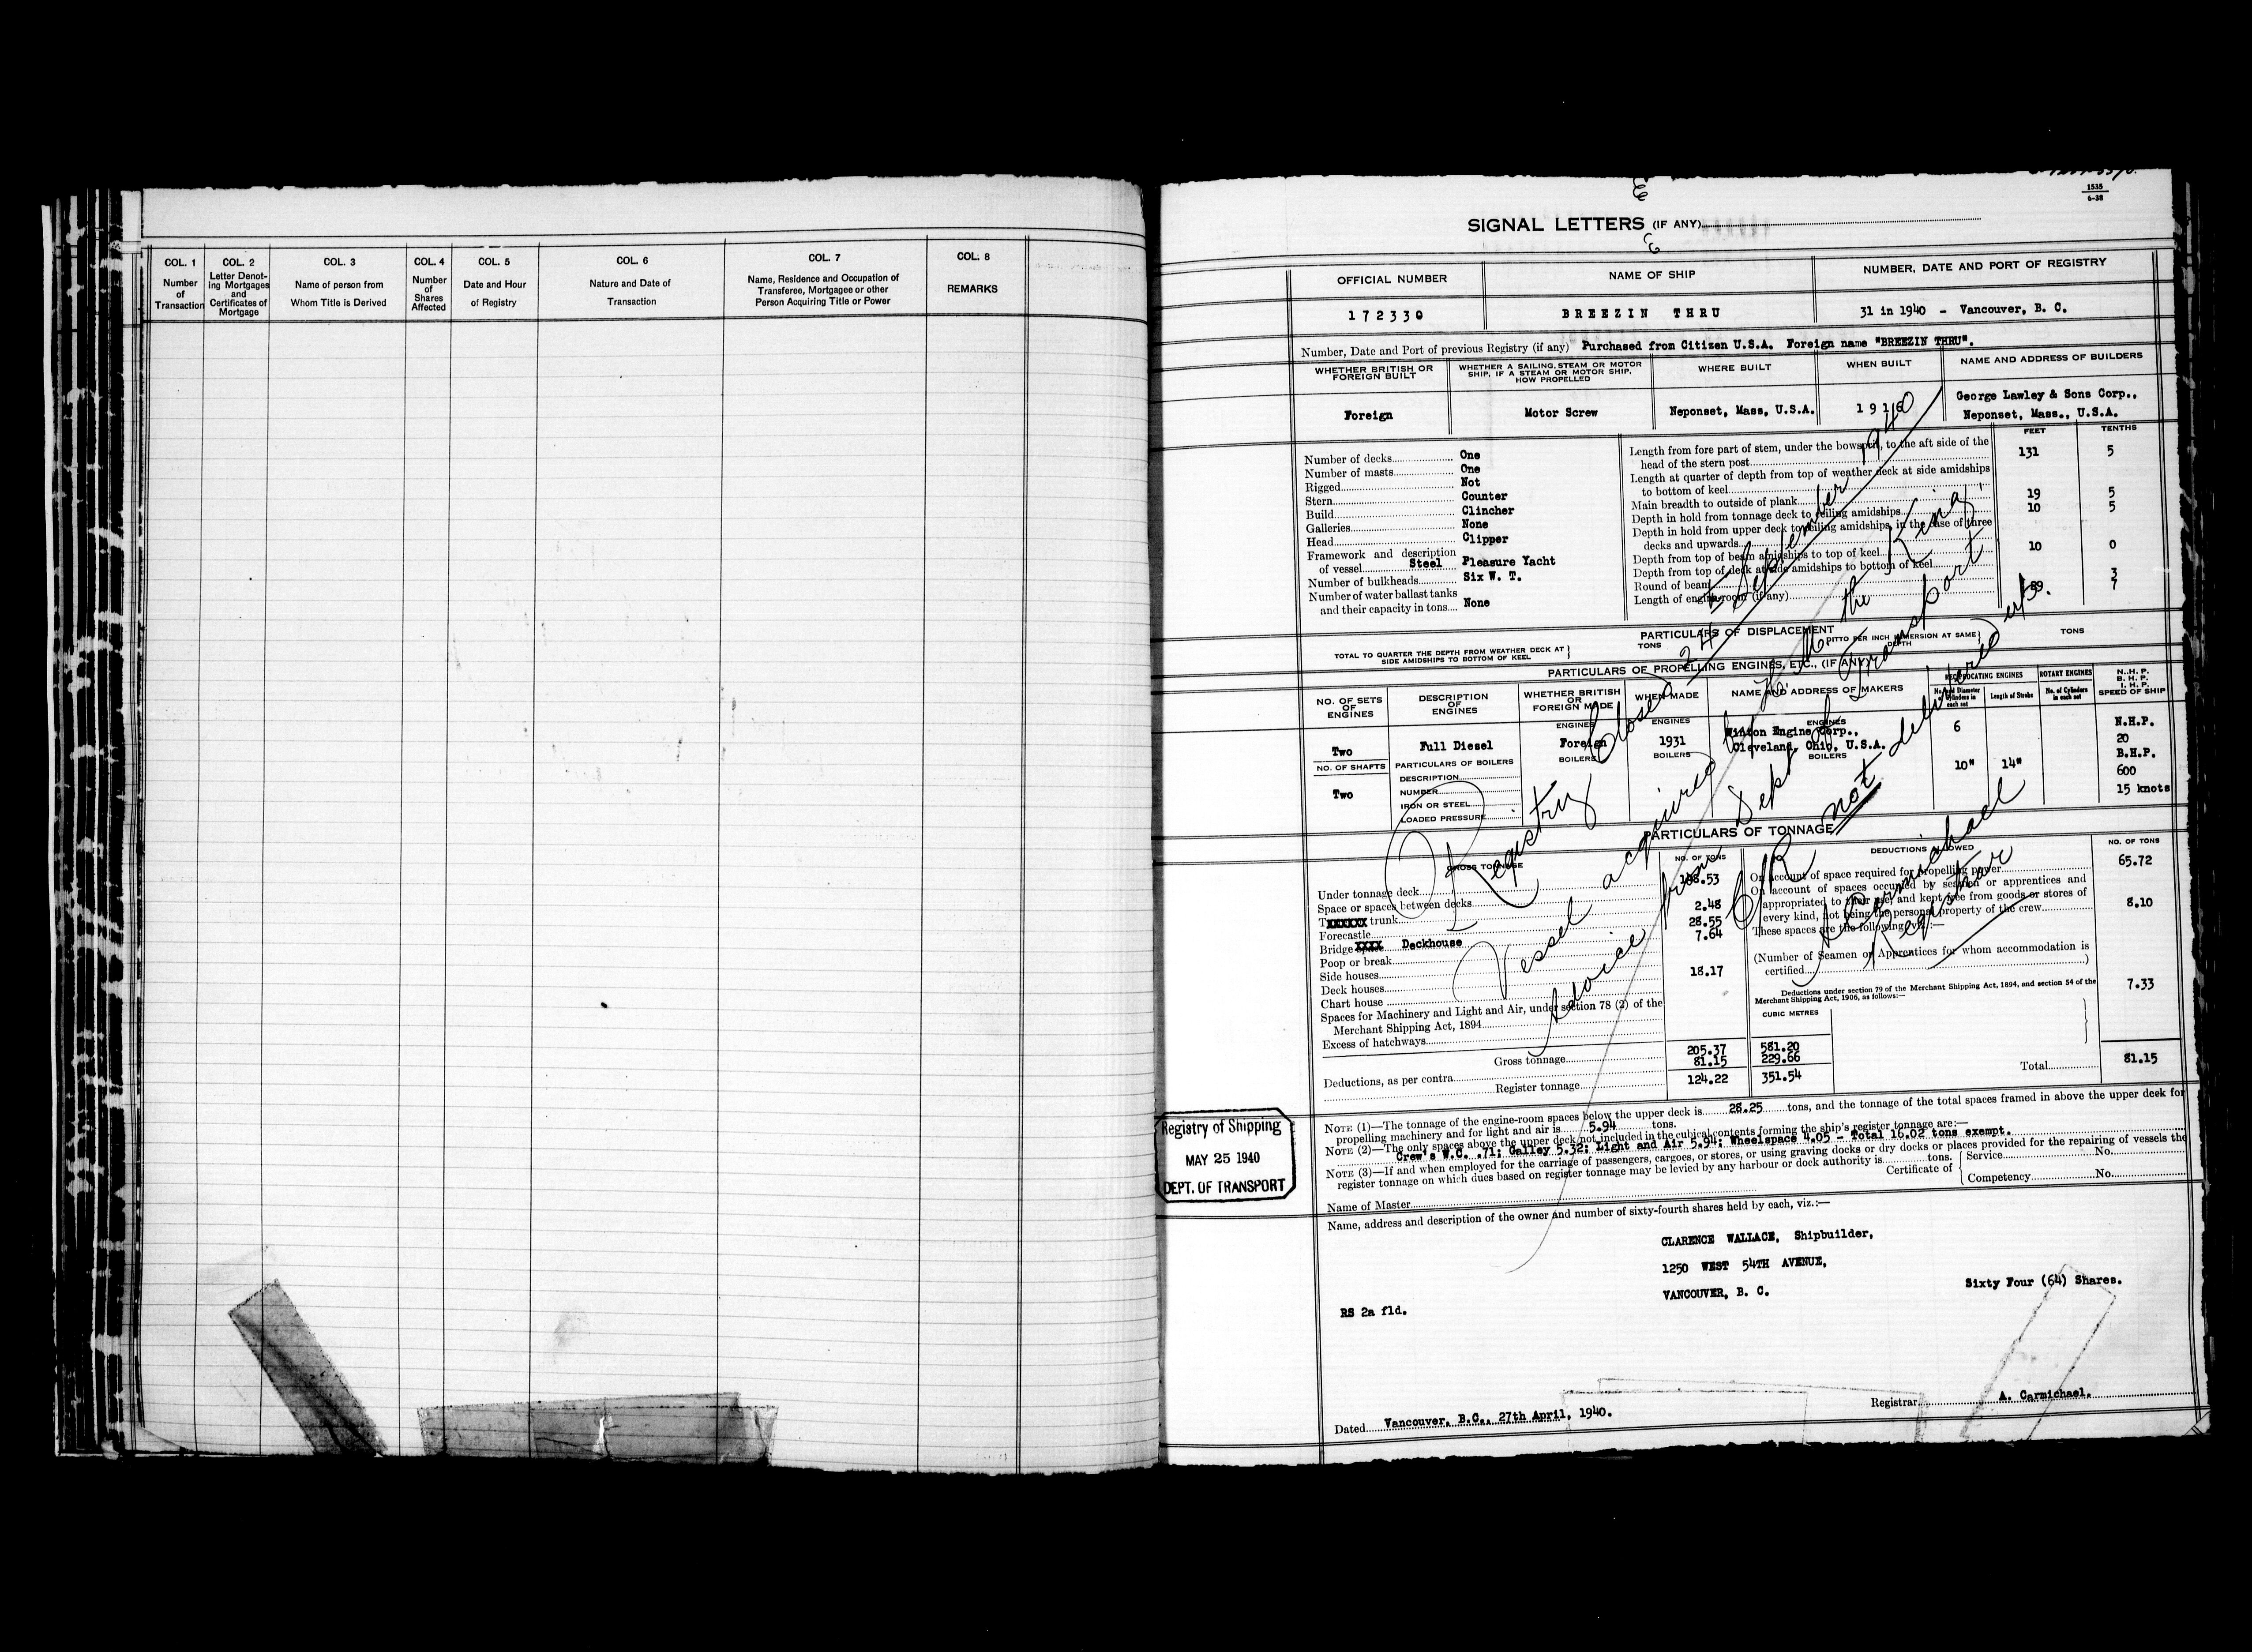 COL. 1
Number
of
Transaction
COL. 2
Letter Denot-
ing Mortgages
and
Certificates of
Mortgage
COL. 3
Name of person from
Whom Title is Derived
COL. 4
Number
of
Shares
Affected
COL. 5
Date and Hour
of Registry
COL. 6
Nature and Date of
Transaction
COL. 7
Name, Residence and Occupation of
Transferee, Mortgagee or other
Person Acquiring Title or Power
COL. 8
REMARKS
1535
6-38
SIGNAL LETTERS (IF ANY)
OFFICIAL NUMBER
NAME OF SHIP
NUMBER, DATE AND PORT OF REGISTRY
172330
BREEZIN THRU
31 in 1940 - Vancouver, B. C.
Number, Date and Port of previous Registry (if any) Purchased from Citizen U.S.A. Foreign name "BREEZIN THRU".
WHETHER BRITISH OR
FOREIGN BUILT
WHETHER A SAILING, STEAM OR MOTOR
SHIP, IF A STEAM OR MOTOR SHIP,
HOW PROPELLED
WHERE BUILT
WHEN BUILT
NAME AND ADDRESS OF BUILDERS
Foreign
Motor Screw
Neponset, Mass, U.S.A.
George Lawley & Sons Corp.,
Neponset, Mass., U.S.A.
FEET TENTHS
Number of decks One
Number of masts One
Rigged Not
Stern Counter
Build Clincher
Galleries None
Head Clipper
Framework and description
of vessel Steel Pleasure Yacht
Number of bulkheads Six W. T.
Number of water ballast tanks
and their capacity in tons None
Length from fore part of stem, under the bowsprit, to the aft side of the
head of the stern post 131 5
Length at quarter of depth from top of weather deck at side amidships
to bottom of keel
Main breadth to outside of plank 19 5
Depth in hold from tonnage deck to ceiling amidships 10 5
Depth in hold from upper deck to ceiling amidships, in the case of three
decks and upwards
Depth from top of beam amidships to top of keel 10 0
Depth from top of deck at side amidships to bottom of keel
Round of beam 3
Length of engine room (if any) 39 7
PARTICULARS OF DISPLACEMENT
TOTAL TO QUARTER THE DEPTH FROM WEATHER DECK AT
SIDE AMIDSHIPS TO BOTTOM OF KEEL
TONS
DITTO PER INCH IMMERSION AT SAME
DEPTH
TONS
PARTICULARS OF PROPELLING ENGINES, ETC., (IF ANY)
NO. OF SETS
OF
ENGINES
DESCRIPTION
OF
ENGINES
WHETHER BRITISH
OR
FOREIGN MADE
WHEN MADE
NAME AND ADDRESS OF MAKERS
RECIPROCATING ENGINES
No. and Diameter
of Cylinders in
each set
Length of Stroke
ROTARY ENGINES
No. of Cylinders
in each set
N. H. P.
B. H. P.
I. H. P.
SPEED OF SHIP
ENGINES
ENGINES
ENGINES
Two
Full Diesel
Foreign
1931
Winton Engine Corp.,
Cleveland, Ohio, U.S.A.
6
N.H.P.
20
B.H.P.
600
15 knots
NO. OF SHAFTS
Two
PARTICULARS OF BOILERS
DESCRIPTION
NUMBER
IRON OR STEEL
LOADED PRESSURE
BOILERS
BOILERS
BOILERS
10" 14"
PARTICULARS OF TONNAGE
GROSS TONNAGE
NO. OF TONS
DEDUCTIONS ALLOWED
NO. OF TONS
Under tonnage deck 148.53
Space or spaces between decks
trunk 2.48
Forecastle 28.55
Bridge Deckhouse 7.64
Poop or break
Side houses
Deck houses 18.17
Chart house
Spaces for Machinery and Light and Air, under section 78 (2) of the
Merchant Shipping Act, 1894
Excess of hatchways
Gross tonnage 205.37 581.20
Deductions, as per contra 81.15 229.66
Register tonnage 124.22 351.54
On account of space required for propelling power 65.72
On account of spaces occupied by seamen or apprentices and
appropriated to their use, and kept free from goods or stores of
every kind, not being the personal property of the crew 8.10
These spaces are the following, viz.:—
(Number of Seamen or Apprentices for whom accommodation is
certified )
Deductions under section 79 of the Merchant Shipping Act, 1894, and section 54 of the
Merchant Shipping Act, 1906, as follows:— 7.33
CUBIC METRES
Total 81.15
Registry Closed 24 September 1940
Vessel acquired by H. M. the King,
Advice from Dept of Transport
CR not delivered up.
A Carmichael
Registrar
NOTE (1)—The tonnage of the engine-room spaces below the upper deck is 28.25 tons, and the tonnage of the total spaces framed in above the upper deck for
propelling machinery and for light and air is 5.94 tons.
NOTE (2)—The only spaces above the upper deck not included in the cubical contents forming the ship's register tonnage are:—
Crew's W.C. .71; Galley 5.32; Light and Air 5.94; Wheelspace 4.05 - Total 16.02 tons exempt.
NOTE (3)—If and when employed for the carriage of passengers, cargoes, or stores, or using graving docks or dry docks or places provided for the repairing of vessels the
register tonnage on which dues based on register tonnage may be levied by any harbour or dock authority is tons.
Certificate of
Service No.
Competency No.
Name of Master
Registry of Shipping
MAY 25 1940
DEPT. OF TRANSPORT
Name, address and description of the owner and number of sixty-fourth shares held by each, viz.:—
CLARENCE WALLACE, Shipbuilder,
1250 WEST 54TH AVENUE,
VANCOUVER, B. C.
Sixty Four (64) Shares.
RS 2a fld.
Dated Vancouver, B.C., 27th April, 1940.
Registrar A. Carmichael.